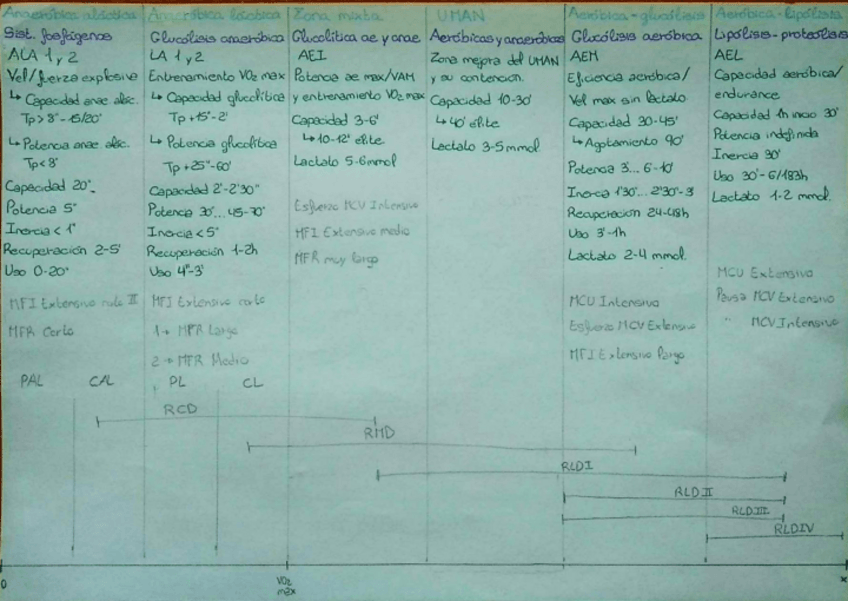 Anaeróbica aláctica
Sist. fosfágenos
ALA 1 y 2
Vel/fuerza explosiva
↳ Capacidad anae alac.
Tp > 8" - 15/20"
↳ Potencia anae alac.
Tp < 8"
Capacidad 20"
Potencia 5"
Inercia < 1"
Recuperación 2-5'
Uso 0-20"
MFI Extensivo
MFR Corto
PAL CAL
Anaeróbica láctica
Glucólisis anaeróbica
LA 1 y 2
Entrenamiento VO2 max
↳ Capacidad glucolítica
Tp +15"-2'
↳ Potencia glucolítica
Tp +25"-60"
Capacidad 2'-2'30"
Potencia 30"...45-70"
Inercia < 5"
Recuperación 1-2h
Uso 4"-3'
MFI Extensivo corto
1 → MFR Largo
2 → MFR Medio
PL CL
Zona mixta
Glucolítica ae y anae
AEI
Potencia ae max/VAM
y entrenamiento VO2 max
Capacidad 3-6'
↳ 10-12' elite
Lactato 5-6mmol
Esfuerzo MCV Intensivo
MFI Extensivo medio
MFR muy largo
UMAN
Aeróbicas y anaeróbicas
Zona mejora del UMAN
y su contención.
Capacidad 10-30'
↳ 40' elite
Lactato 3-5 mmol.
Aeróbica - glucólisis
Glucólisis aeróbica
AEM
Eficiencia aeróbica/
Vel max sin lactato
Capacidad 30-45'
↳ Agotamiento 90'
Potencia 3'... 6-10'
Inercia 1'30"... 2'30"-3
Recuperación 24-48h
Uso 3'-1h
Lactato 2-4 mmol.
MCU Intensivo
Esfuerzo MCV Extensivo
MFI Extensivo Largo
Aeróbica - lipólisis
Lipólisis - proteólisis
AEL
Capacidad aeróbica/
endurance
Capacidad 1h inicio 30'
Potencia indefinida
Inercia 30'
Uso 30'-6/183h
Lactato 1-2 mmol.
MCU Extensivo
Pausa MCV Extensivo
" MCV Intensivo
RCD
RMD
RLDI
RLDII
RLDIII
RLDIV
0
VO2
max
x